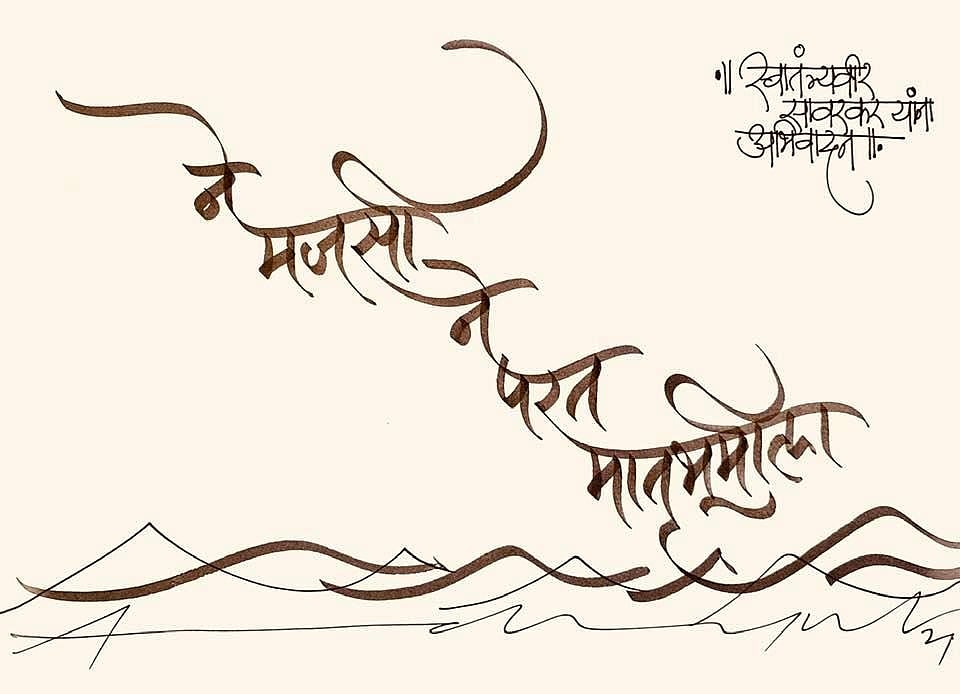 ने
मजसी
ने
परत
मातृभूमीला
॥ स्वातंत्र्यवीर
सावरकर यांना
अभिवादन ॥